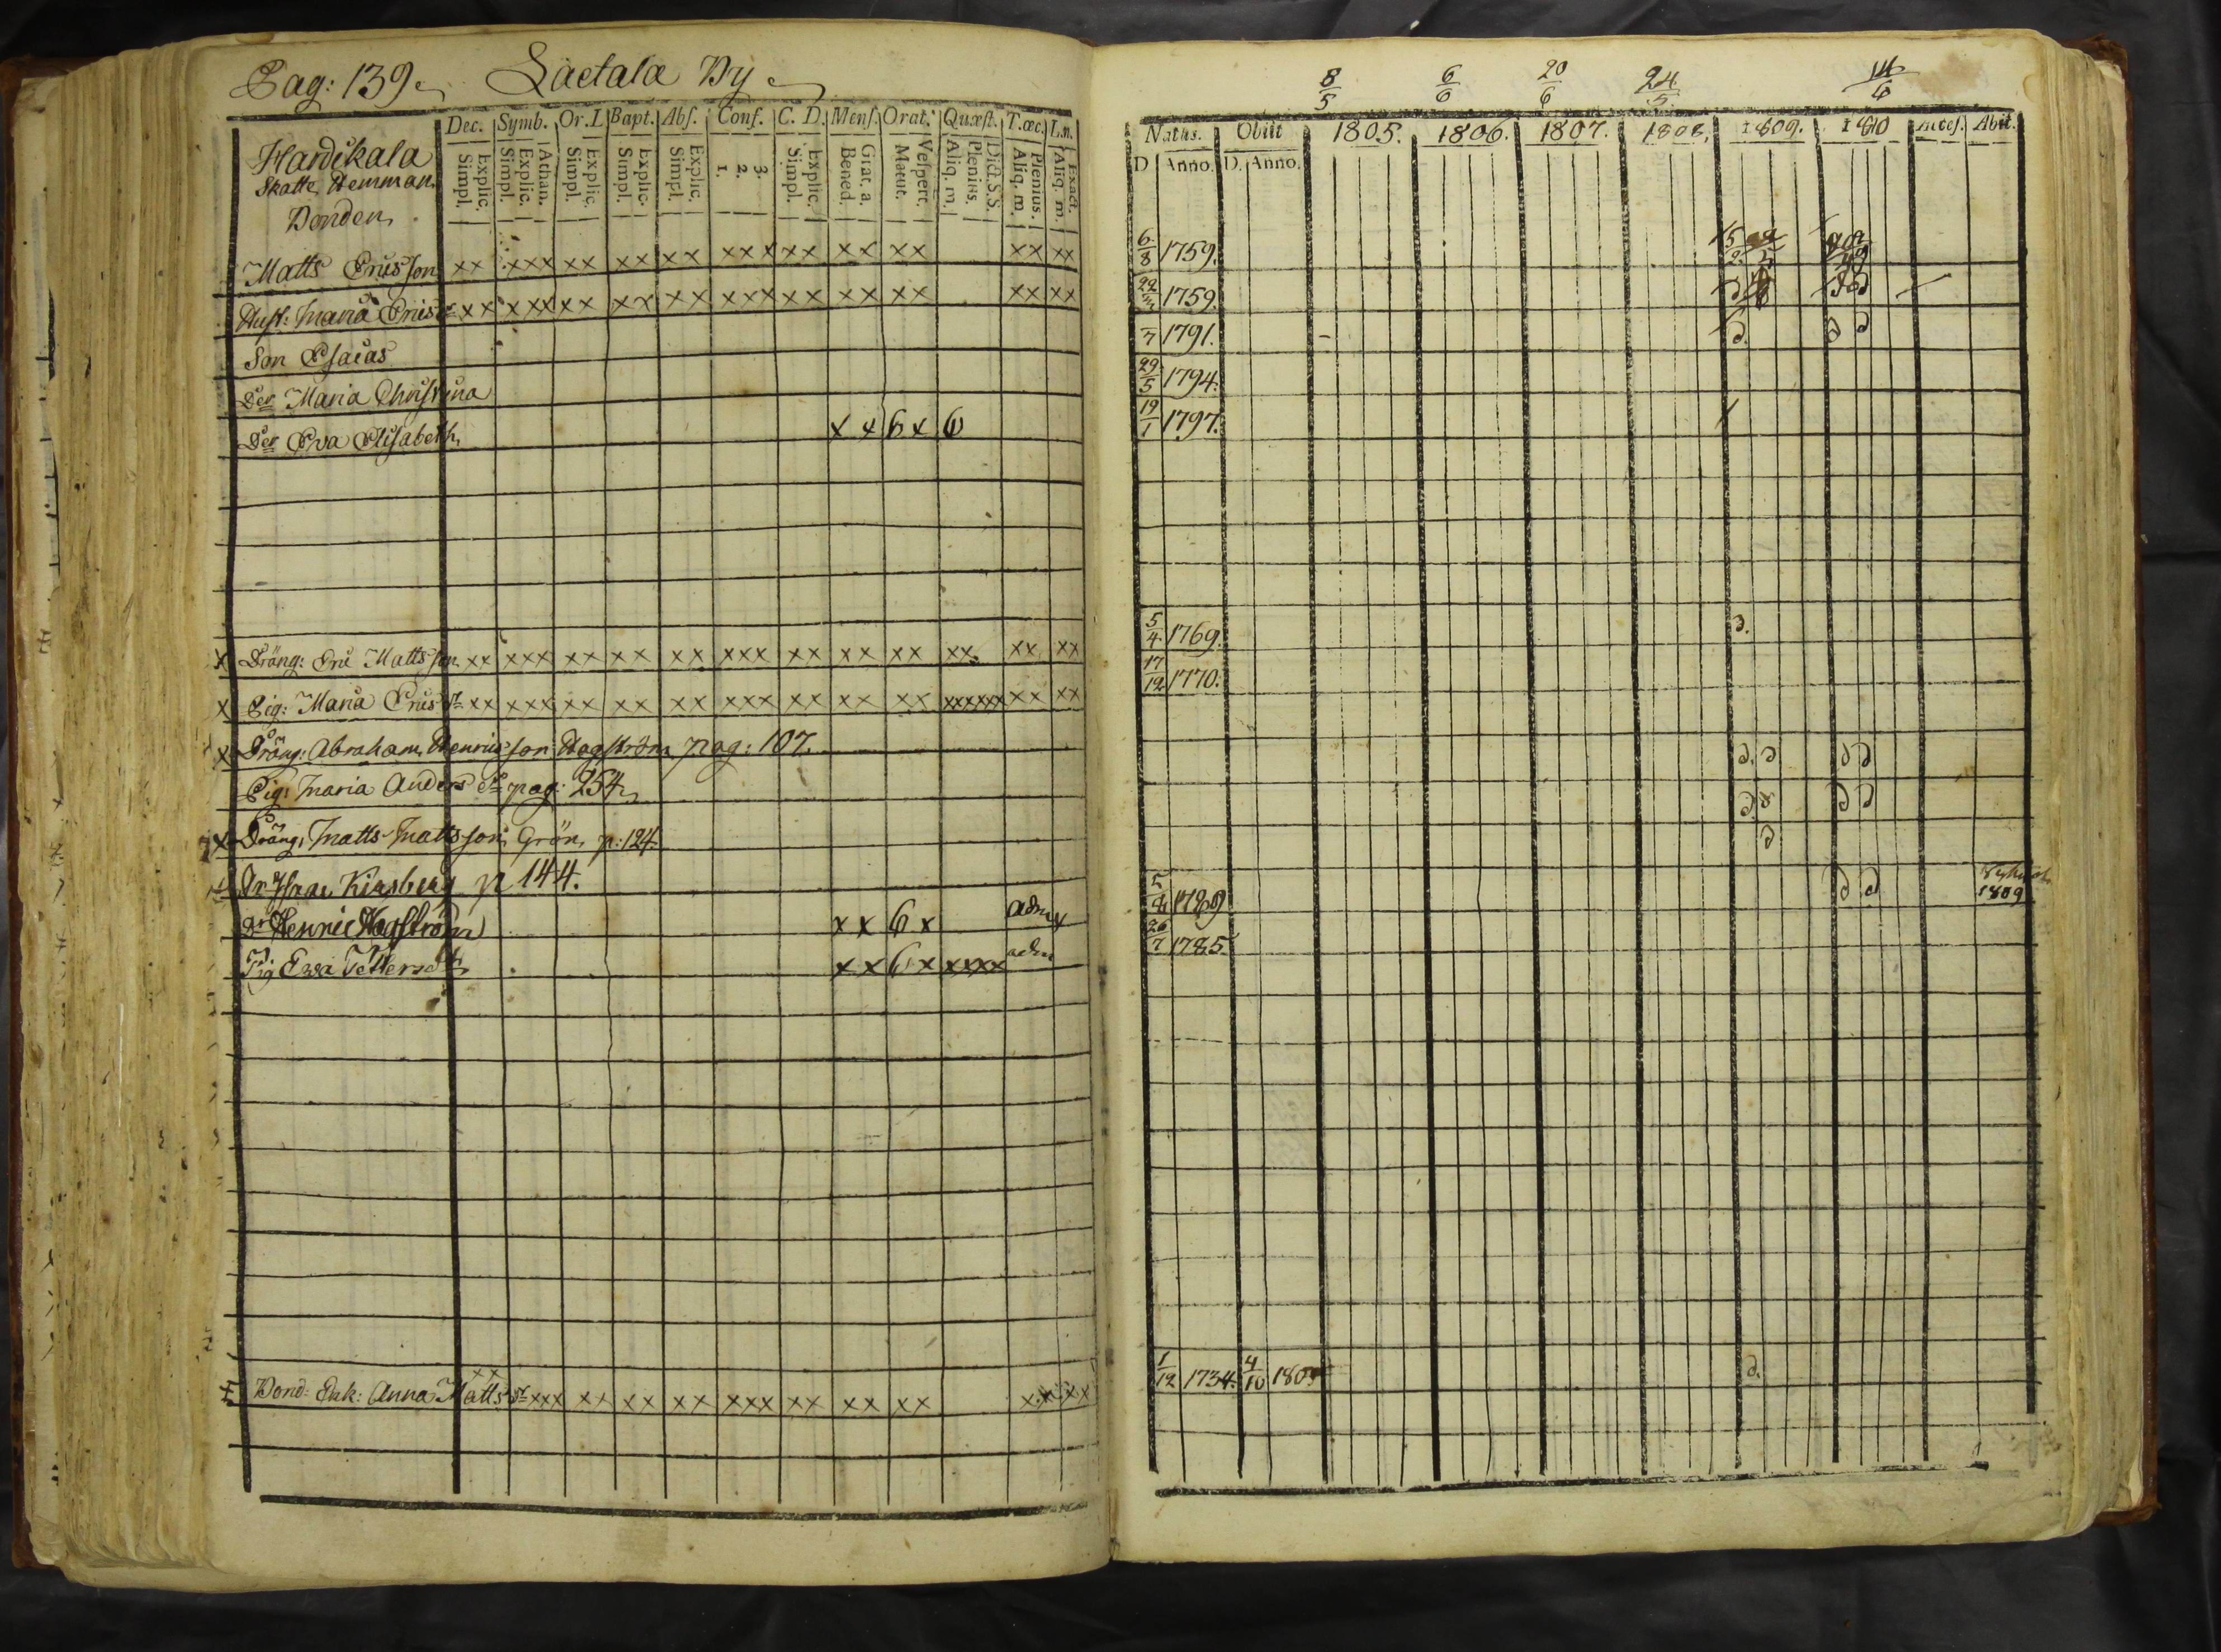 Pag: 139. Laetala By
Hardikala
Skatte Hemman
Bonden
Dec. Symb. Or. D. Bapt. Abs. Conf. C. D. Mens. Orat. Quæst. T.œc. L.n.
Simpl. Explic. Simpl. Explic. Athan. Simpl. Explic. Simpl. Explic. Simpl. Explic. 1. 2. 3. Simpl. Explic. Bened. Grat. a. Matut. Vespert. Aliq. m. Plenius. Dict. S.S. Aliq. m. Plenius. Aliq. m. Exact.
Matts Ericsson xx xxx xx xx xx xxx xx xx xx xx xx
Hust: Maria Erics dr xx xxx xx xx xx xxx xx xx xx xx xx
Son Esaias
Dr Maria Christina
Dr Eva Elisabeth x x 6 x 6
x Dräng: Eric Mattsson xx xxx xx xx xx xxx xx xx xx xx xx xx
x Pig: Maria Erics dr xx xxx xx xx xx xxx xx xx xx xxxxxx xx xx
x Dräng: Abraham Henricsson Hagström pag: 107.
Pig: Maria Anders dr pag: 254
x Dräng: Matts Mattsson Grön p: 124.
Dr Isaac Kinsberg p 144.
Dr Henric Hagström x x 6 x adm x
Pig Ewa Petters dr x x 6 x xxxx adm
Bond: Enk: Anna Matts dr xx xxx xx xx xx xxx xx xx xx xx xx
8/5 6/6 20/6 24/5 14/6
Natus. Obiit 1805. 1806. 1807. 1808. 1809. 1810 Acces. Abit.
D Anno. D. Anno.
6/8 1759.
22 1759.
7 1791.
29/5 1794.
19/1 1797.
5/4 1769.
17/12 1770.
5 1789 1809
26/7 1785.
1/12 1734. 4/10 1809